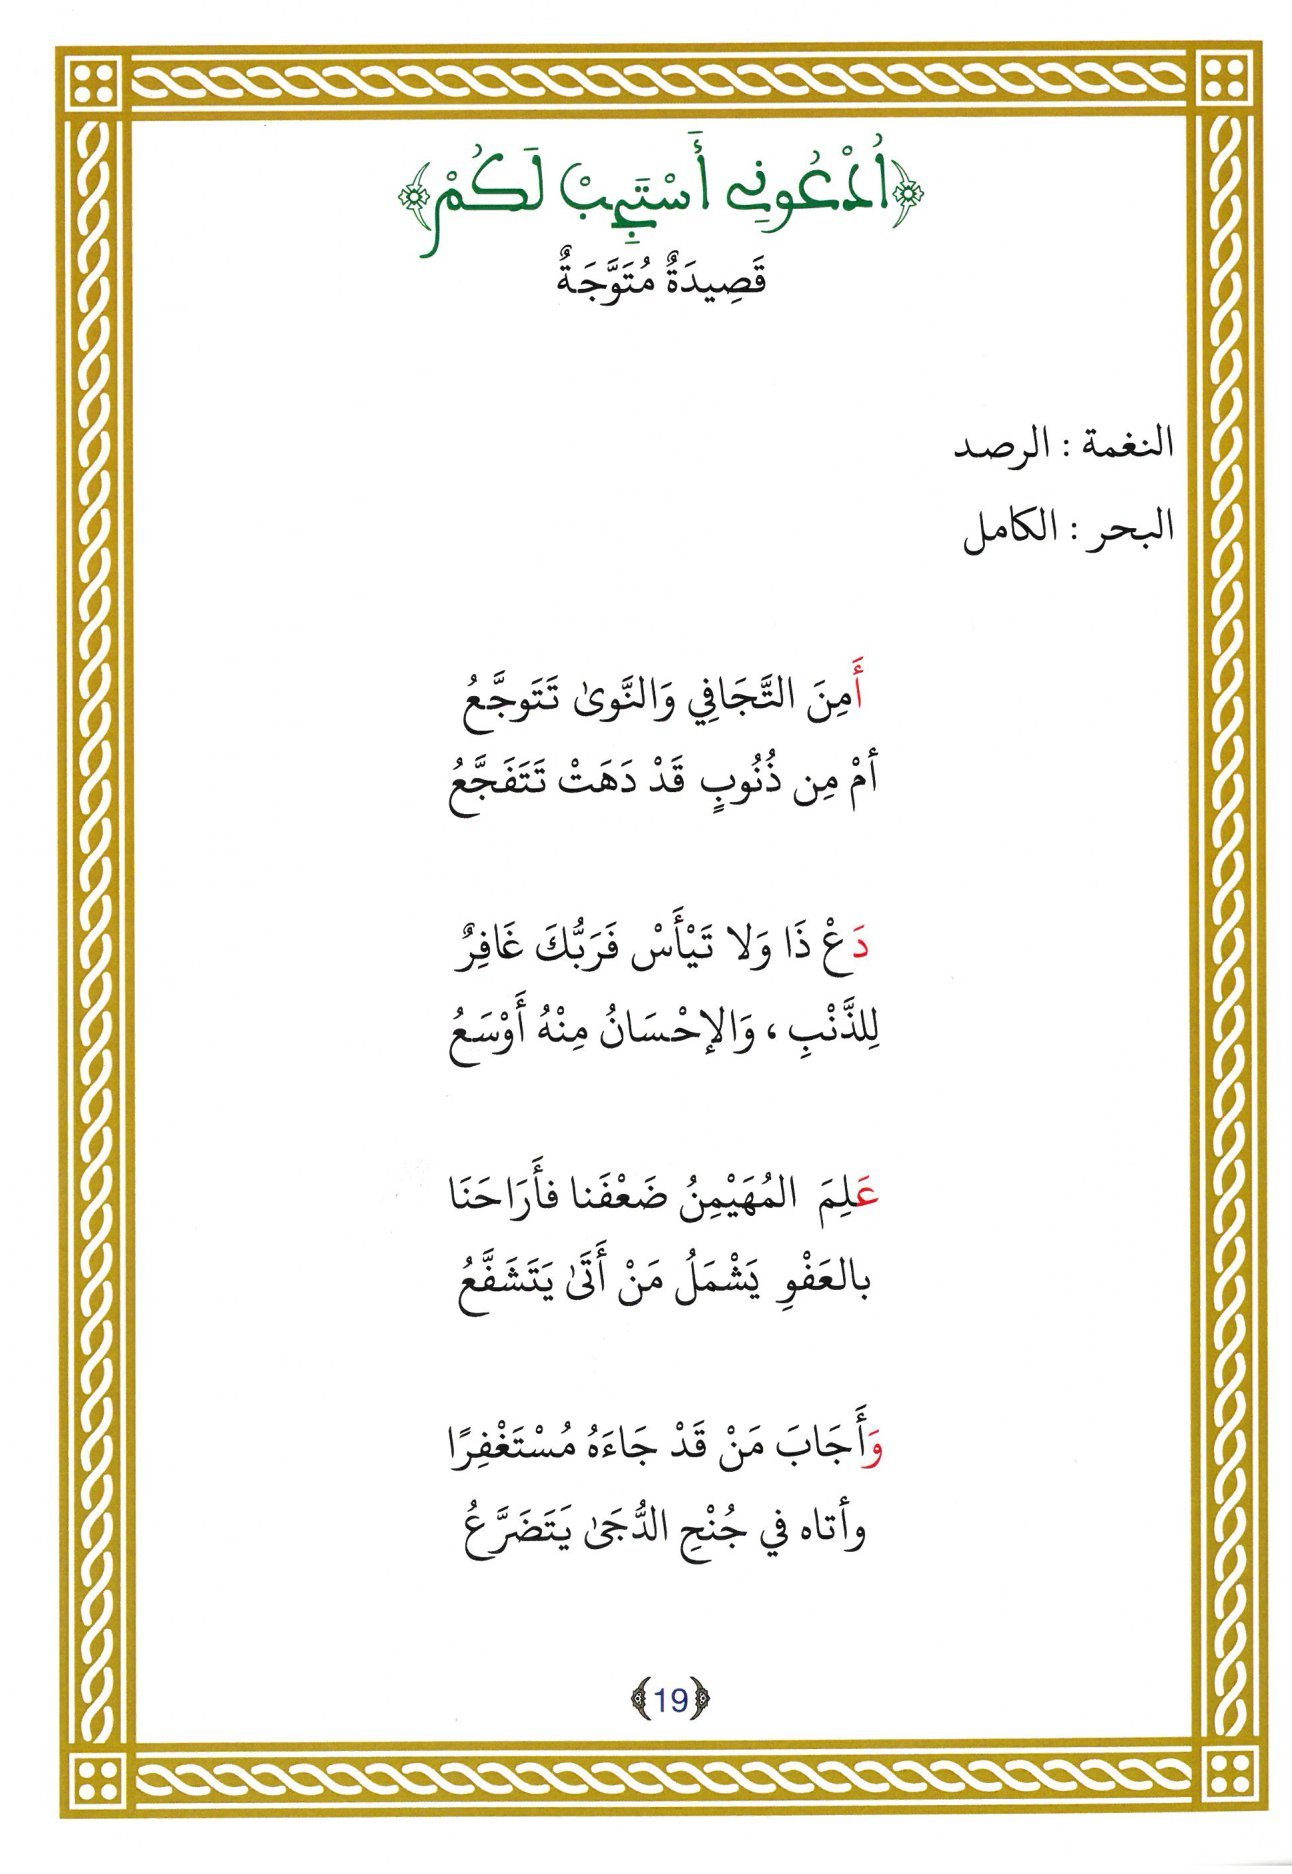 ﴿اُدْعُونِي أَسْتَجِبْ لَكُمْ﴾
قَصِيدَةٌ مُتَوَّجَةٌ
النغمة : الرصد
البحر : الكامل
أَمِنَ التَّجَافِي وَالنَّوىٰ تَتَوجَّعُ
أمْ مِن ذُنُوبٍ قَدْ دَهَتْ تَتَفَجَّعُ
دَعْ ذَا وَلا تَيْأَسْ فَرَبُّكَ غَافِرٌ
لِلذَّنْبِ ، وَالإحْسَانُ مِنْهُ أَوْسَعُ
عَلِمَ المُهَيْمِنُ ضَعْفَنا فأَرَاحَنَا
بالعَفْوِ يَشْمَلُ مَنْ أَتَىٰ يَتَشَفَّعُ
وَأَجَابَ مَنْ قَدْ جَاءَهُ مُسْتَغْفِرًا
وأتاه في جُنْحِ الدُّجَىٰ يَتَضَرَّعُ
﴿19﴾